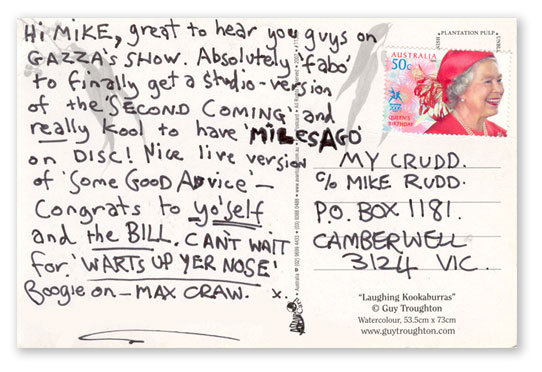 Hi MIKE, great to hear you guys on
GAZZA'S SHOW. Absolutely 'fabo'
to finally get a studio-version
of the 'SECOND COMING' and
really kool to have 'MILESAGO'
on DISC! Nice live version
of 'Some Good Advice' -
Congrats to yo'self
and the BILL. CAN'T WAIT
for 'WARTS UP YER NOSE'
Boogie on - MAX CRAW. x.
PLANTATION PULP
AUSTRALIA
50c
QUEEN'S
BIRTHDAY
MY CRUDD.
c/o MIKE RUDD.
P.O. BOX 1181.
CAMBERWELL
3124 VIC.
"Laughing Kookaburras"
© Guy Troughton
Watercolour, 53.5cm x 73cm
www.guytroughton.com